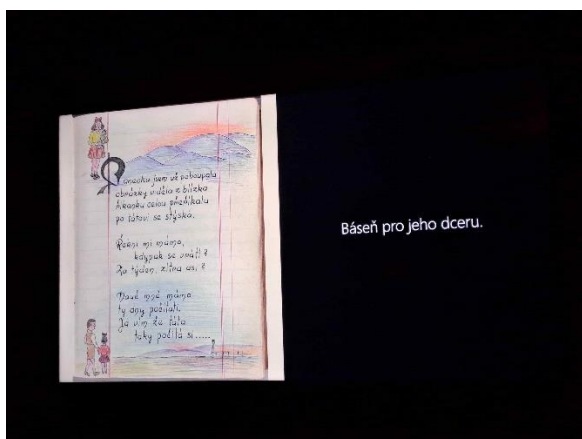 jsem už pohoupala
obrázky viděla z blízka
hranku celou předříkala
po tátovi se stýská.
Řekni mi mámo,
kdypak se vrátí?
Za týden, zítra asi?
mně mámo
ty dny počítati.
Já vím že táta
taky počítá si.....
Báseň pro jeho dceru.